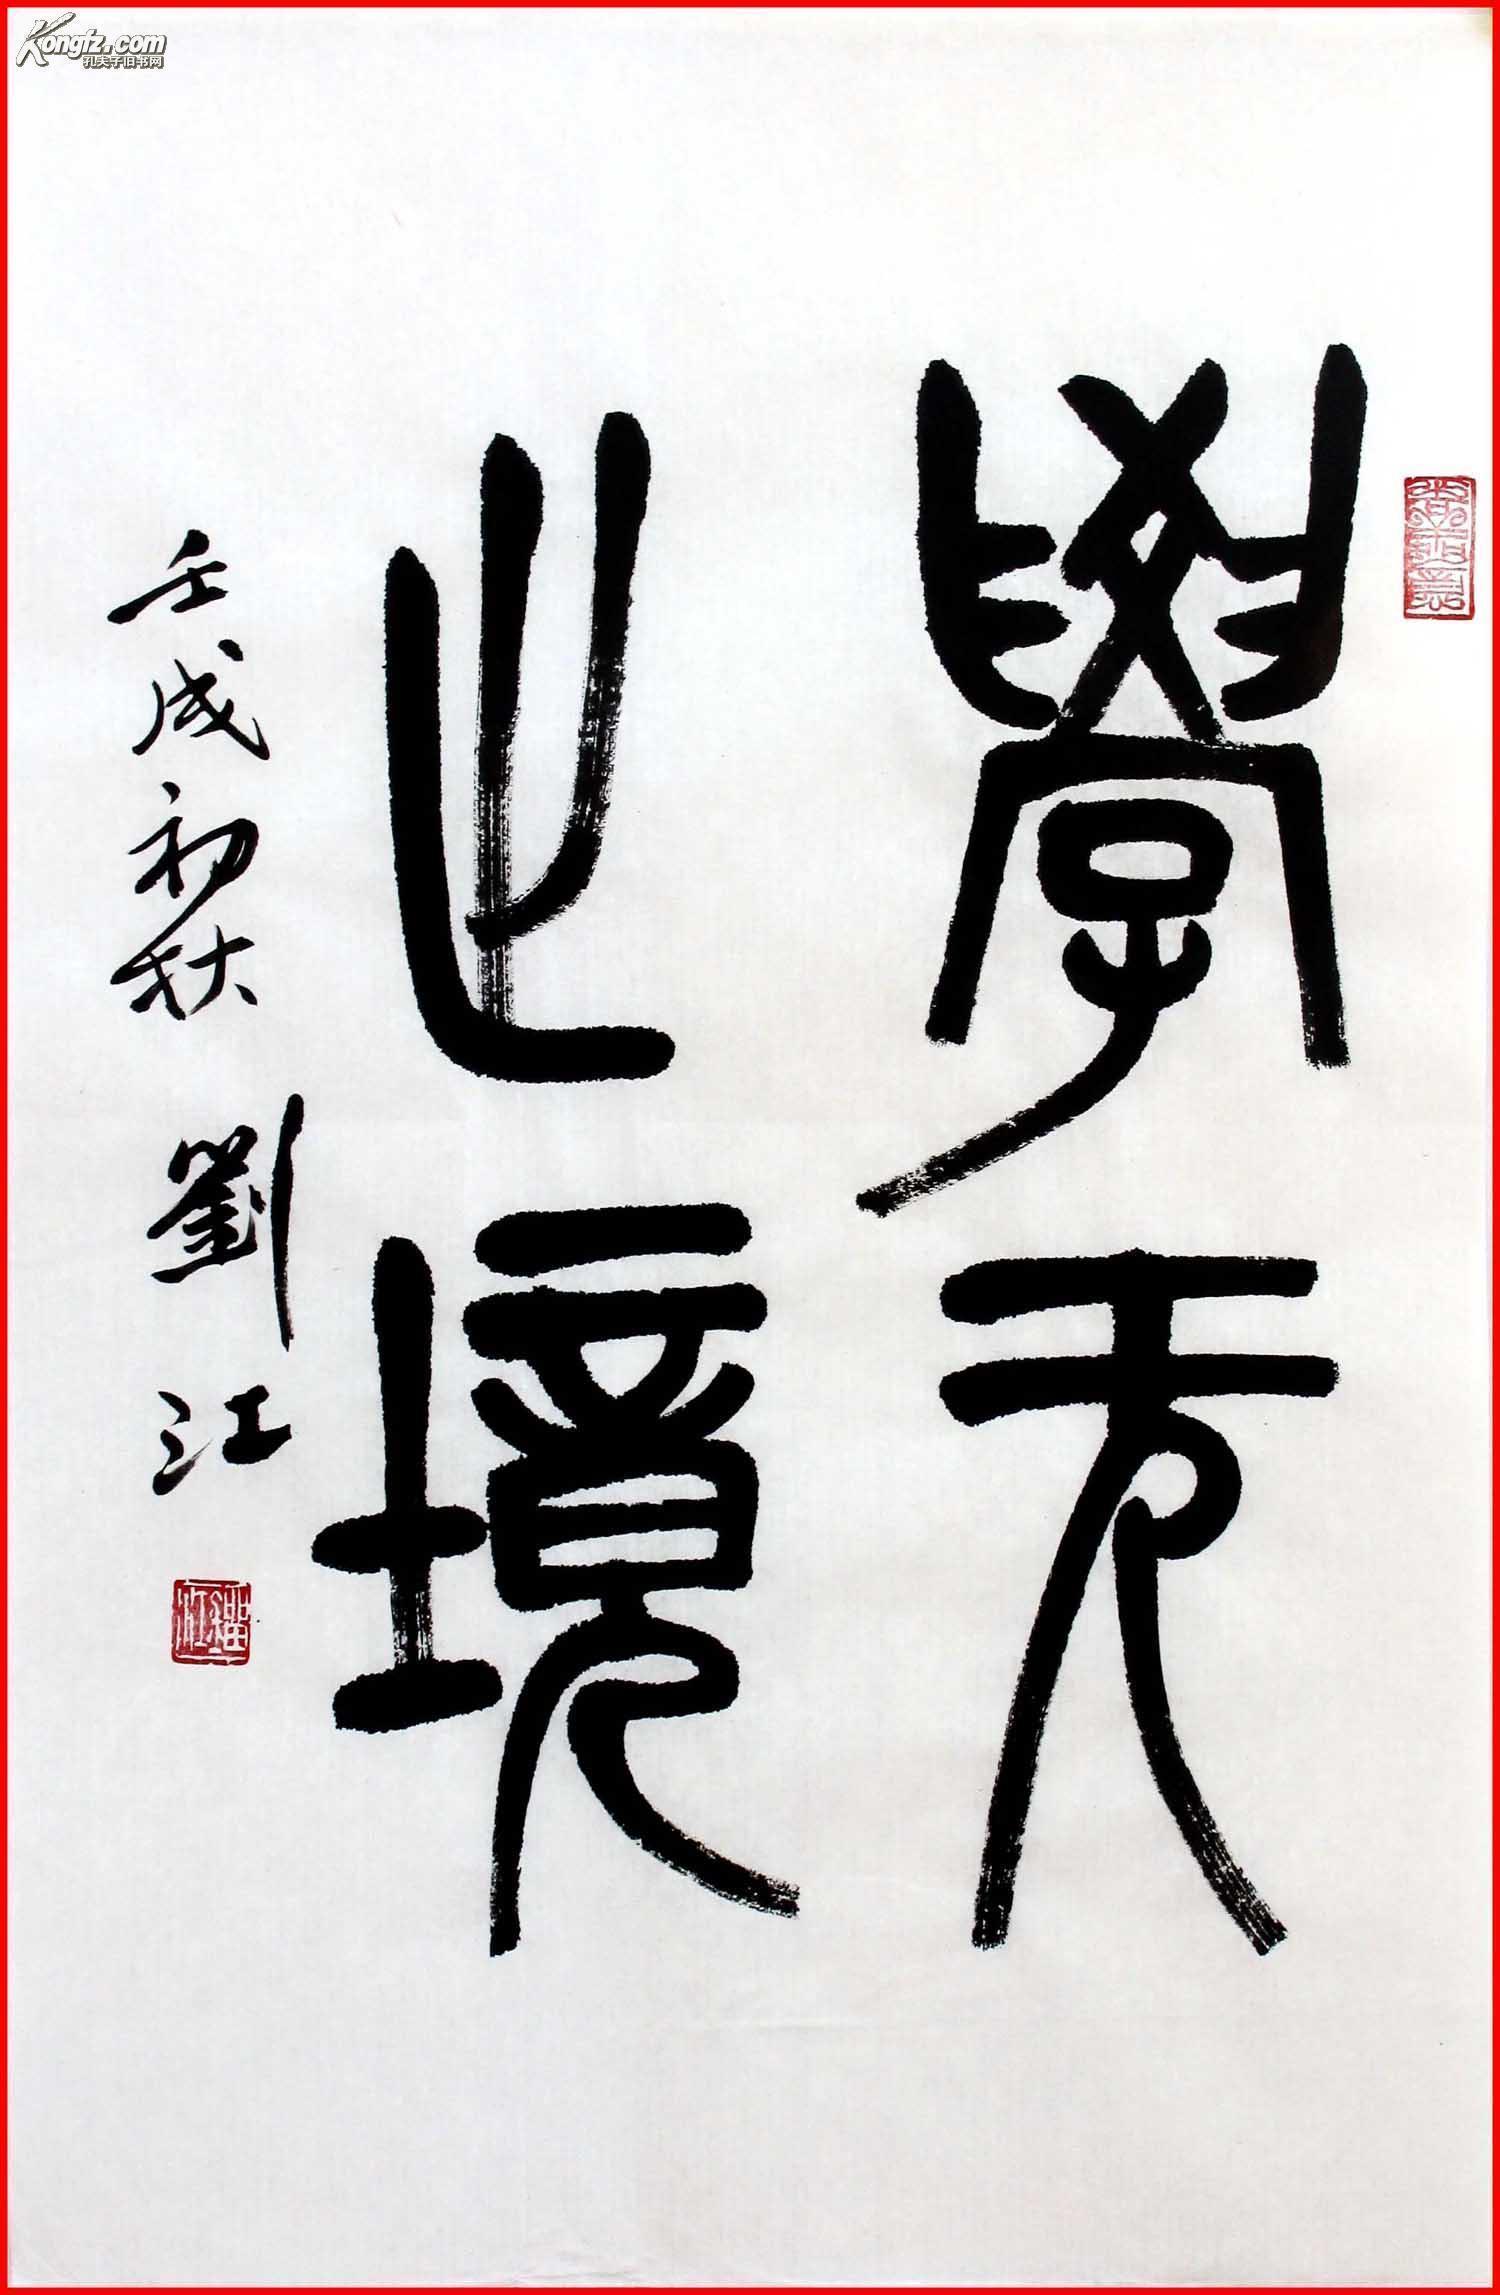 Kongfz.com
孔夫子旧书网
學无
止境
壬戌初秋 劉江